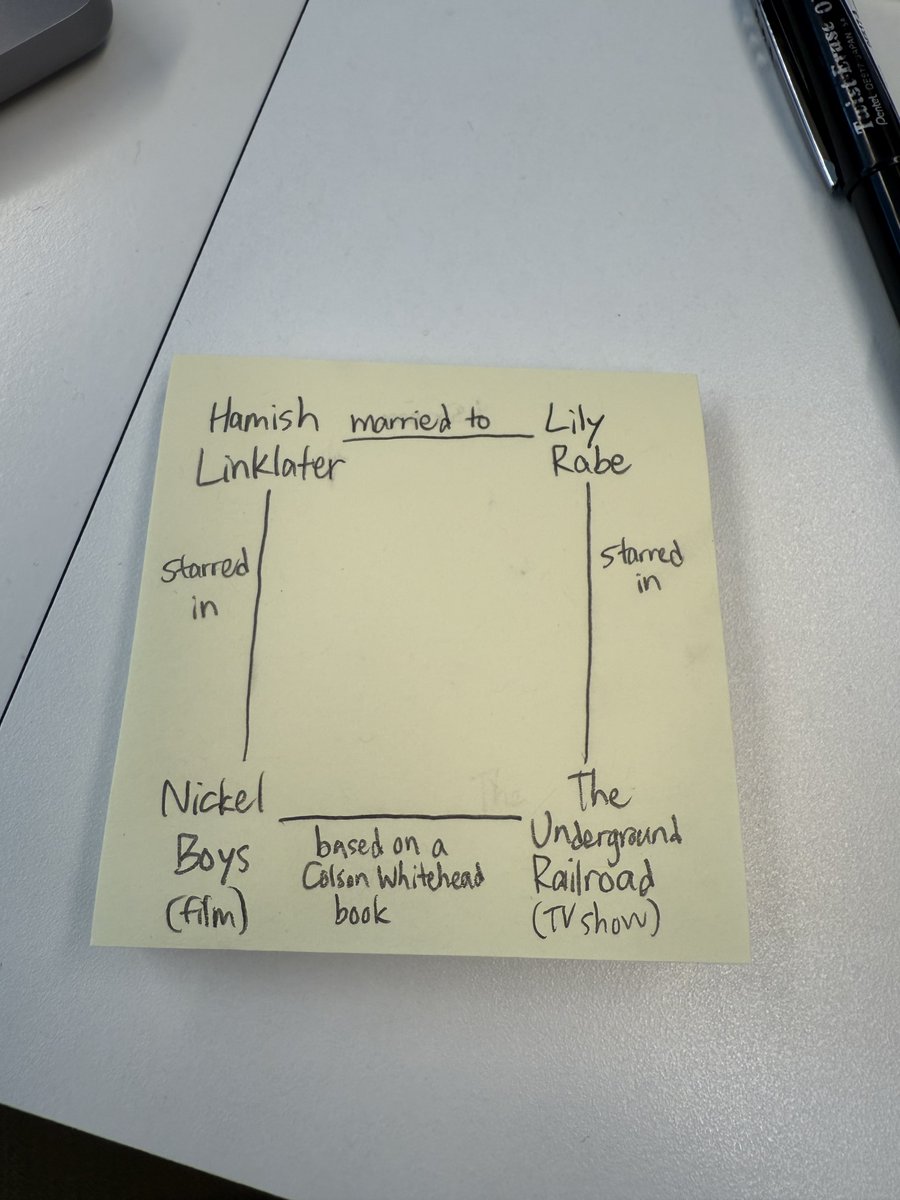 Twist-Erase
Pentel JAPAN
Hamish married to Lily
Linklater Rabe
starred in
starred in
Nickel Boys (film)
based on a
Colson Whitehead
book
The
Underground
Railroad
(TV show)